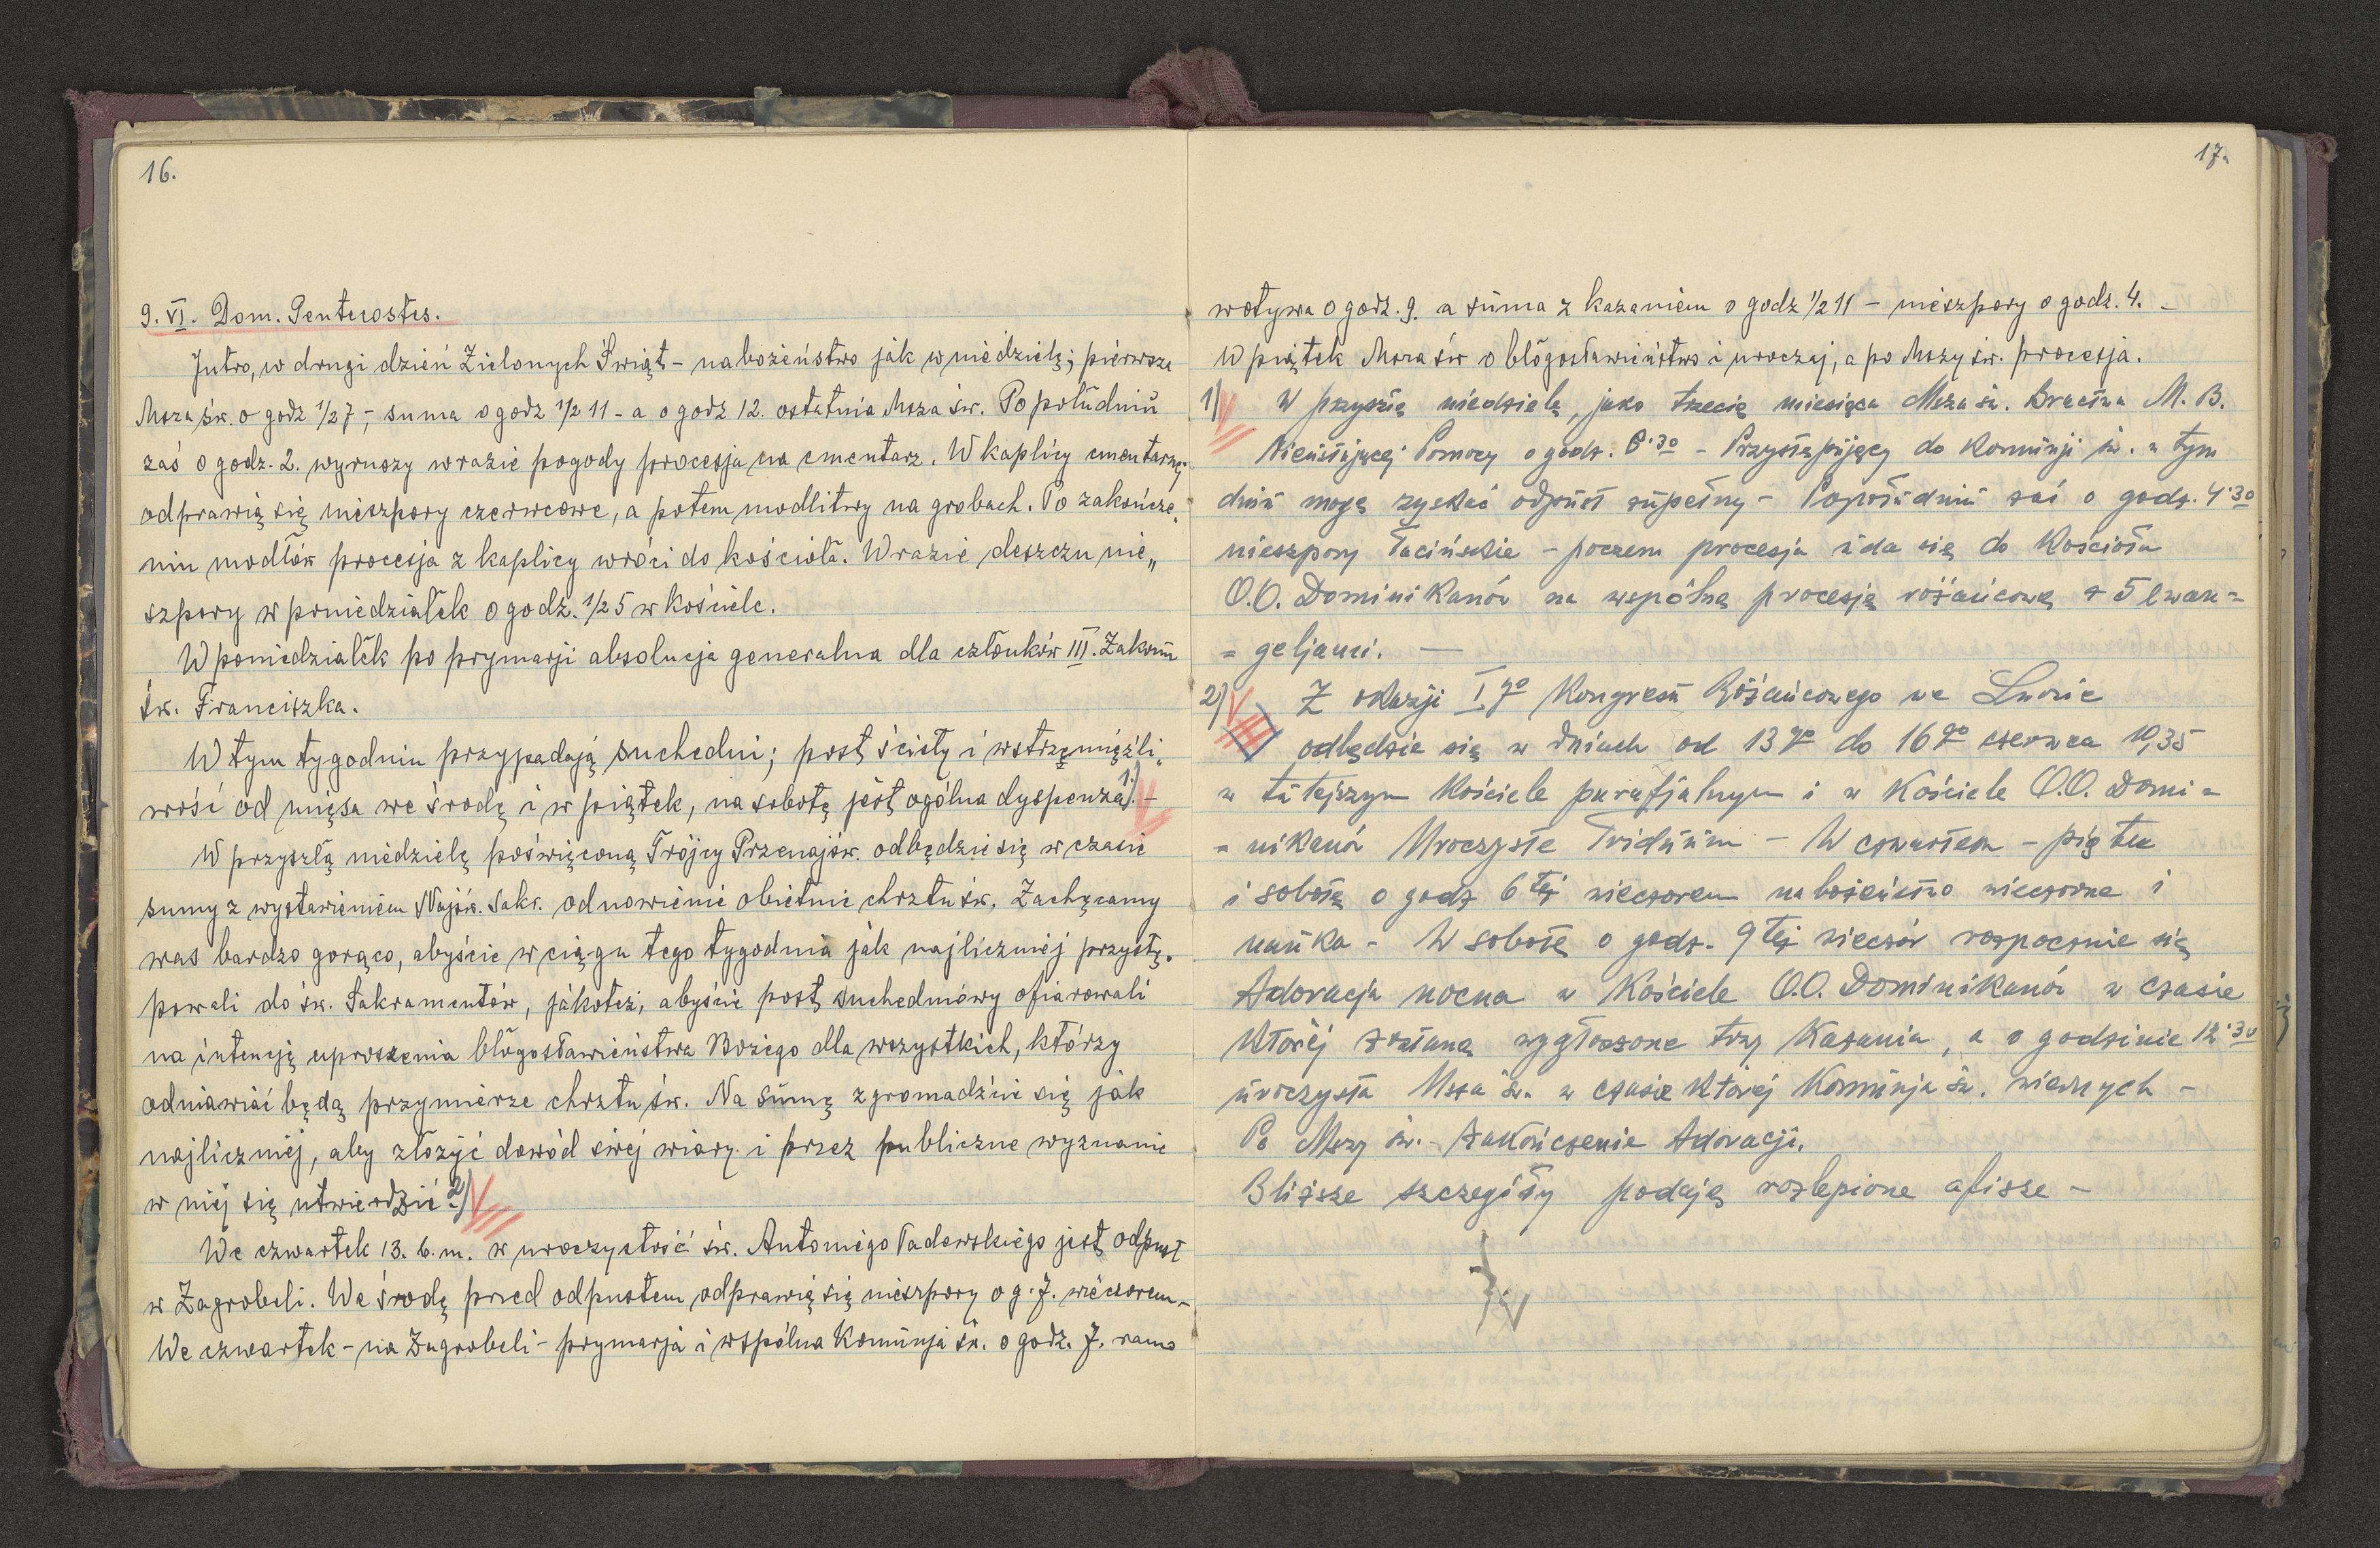 16.
9. VI. Dom. Pentecostes.
Jutro, w drugi dzień Zielonych Świąt - nabożeństwo jak w niedzielę; pierwsza
Msza św. o godz 1/2 7, - suma o godz 1/2 11 - a o godz 12. ostatnia Msza św. Popołudniu
zaś o godz. 2. wyruszy w razie pogody procesja na cmentarz. W kaplicy cmentarnej
odprawią się nieszpory czerwcowe, a potem modlitwy na grobach. Po zakończe„
niu modłów procesja z kaplicy wróci do kościoła. W razie deszczu nie„
szpory w poniedziałek o godz. 1/2 5 w kościele.
W poniedziałek po prymarji absolucja generalna dla członków III. Zakonu
św. Franciszka.
W tym tygodniu przypadają suchedni; post ścisły i wstrzemięźli„
wość od mięsa we środę i w piątek, na sobotę jest ogólna dyspenza 1.) -
W przyszłą niedzielę poświęconą Trójcy Przenajśw. odbędzie się w czasie
sumy z wystawieniem Najśw. Sakr. odnowienie obietnic chrztu św. Zachęcamy
was bardzo gorąco, abyście w ciągu tego tygodnia jak najliczniej przystę„
powali do św. Sakramentów, jakoteż, abyście post suchedniowy ofiarowali
na intencję uproszenia błogosławieństwa Bożego dla wszystkich, którzy
odnawiać będą przymierze chrztu św. Na sumę zgromadźcie się jak
najliczniej, aby złożyć dowód swej wiary i przez publiczne wyznanie
w niej się utwierdzić. 2)
We czwartek 13. b.m. w uroczystość św. Antoniego Padewskiego jest odpust
w Zagrobeli. We środę przed odpustem odprawią się nieszpory o g. 7. wieczorem -
We czwartek - na Zagrobeli - prymarja i wspólna Komunja św. o godz. 7. rano
17.
wotywa o godz. 9. a suma z kazaniem o godz 1/2 11 - nieszpory o godz. 4. -
W piątek Msza św o błogosławieństwo i urodzaj, a po Mszy św. procesja.
1) W przyszłą niedzielę, jako trzecią miesiąca Msza św. Bractwa M. B.
Nieustającej Pomocy o godz. 8.30 - Przystępujący do Komunji św. w tym
dniu mogą zyskać odpust zupełny - Popołudniu zaś o godz. 4.30
nieszpory łacińskie - poczem procesja uda się do Kościoła
O.O. Dominikanów na wspólną procesję różańcową z 5 ewan=
= geljami. —
2) Z okazji I.go Kongresu Różańcowego we Lwowie
odbędzie się w dniach od 13 go do 16 go czerwca 1935
w tutejszym Kościele parafjalnym i w Kościele O.O. Domi=
= nikanów Uroczyste Triduum - W czwartek - piątek
i sobotę o godz 6 tej wieczorem nabożeństwo wieczorne i
nauka - W sobotę o godz. 9 tej wieczór rozpocznie się
Adoracja nocna w Kościele O.O. Dominikanów w czasie
której zostaną wygłoszone trzy Kazania, a o godzinie 12.30
uroczysta Msza św. w czasie której Komunja św. wiernych -
Po Mszy św. - zakończenie Adoracji.
Bliższe szczegóły podają rozlepione afisze -